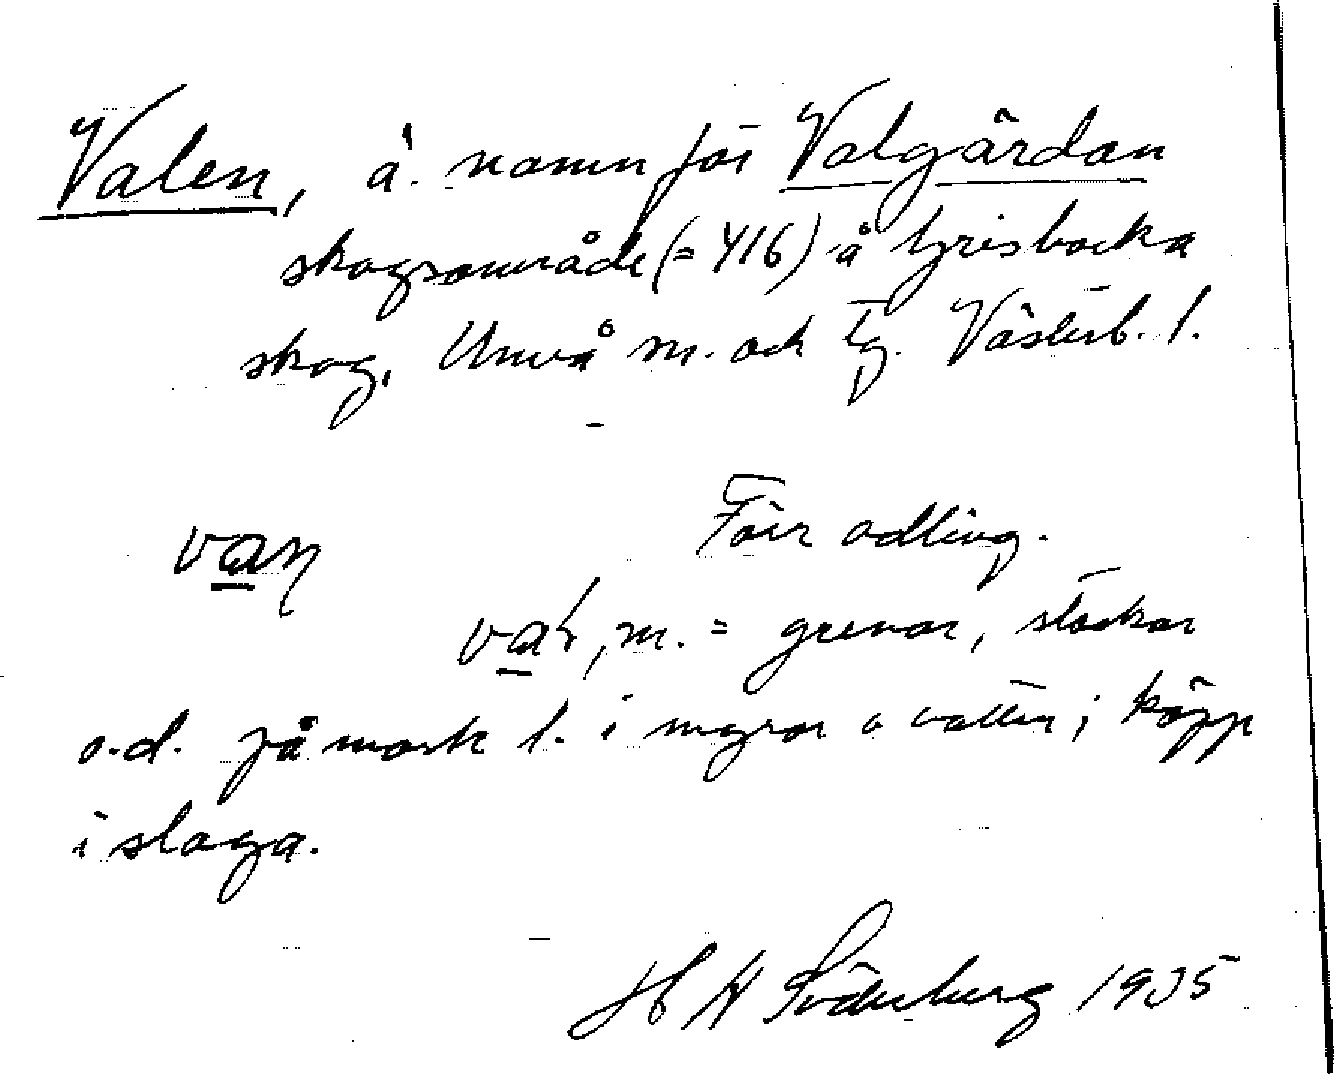 Valen, å. namn för Valgärdan
skogsområde (= 416) å Grisbacka
skog, Umeå m. och tg. Västerb. l.
van
Förr odling.
val, m. = grenar, stockar
o.d. på mark l. i myrar o vatten; käpp
i slaga.
H Söderberg 1935